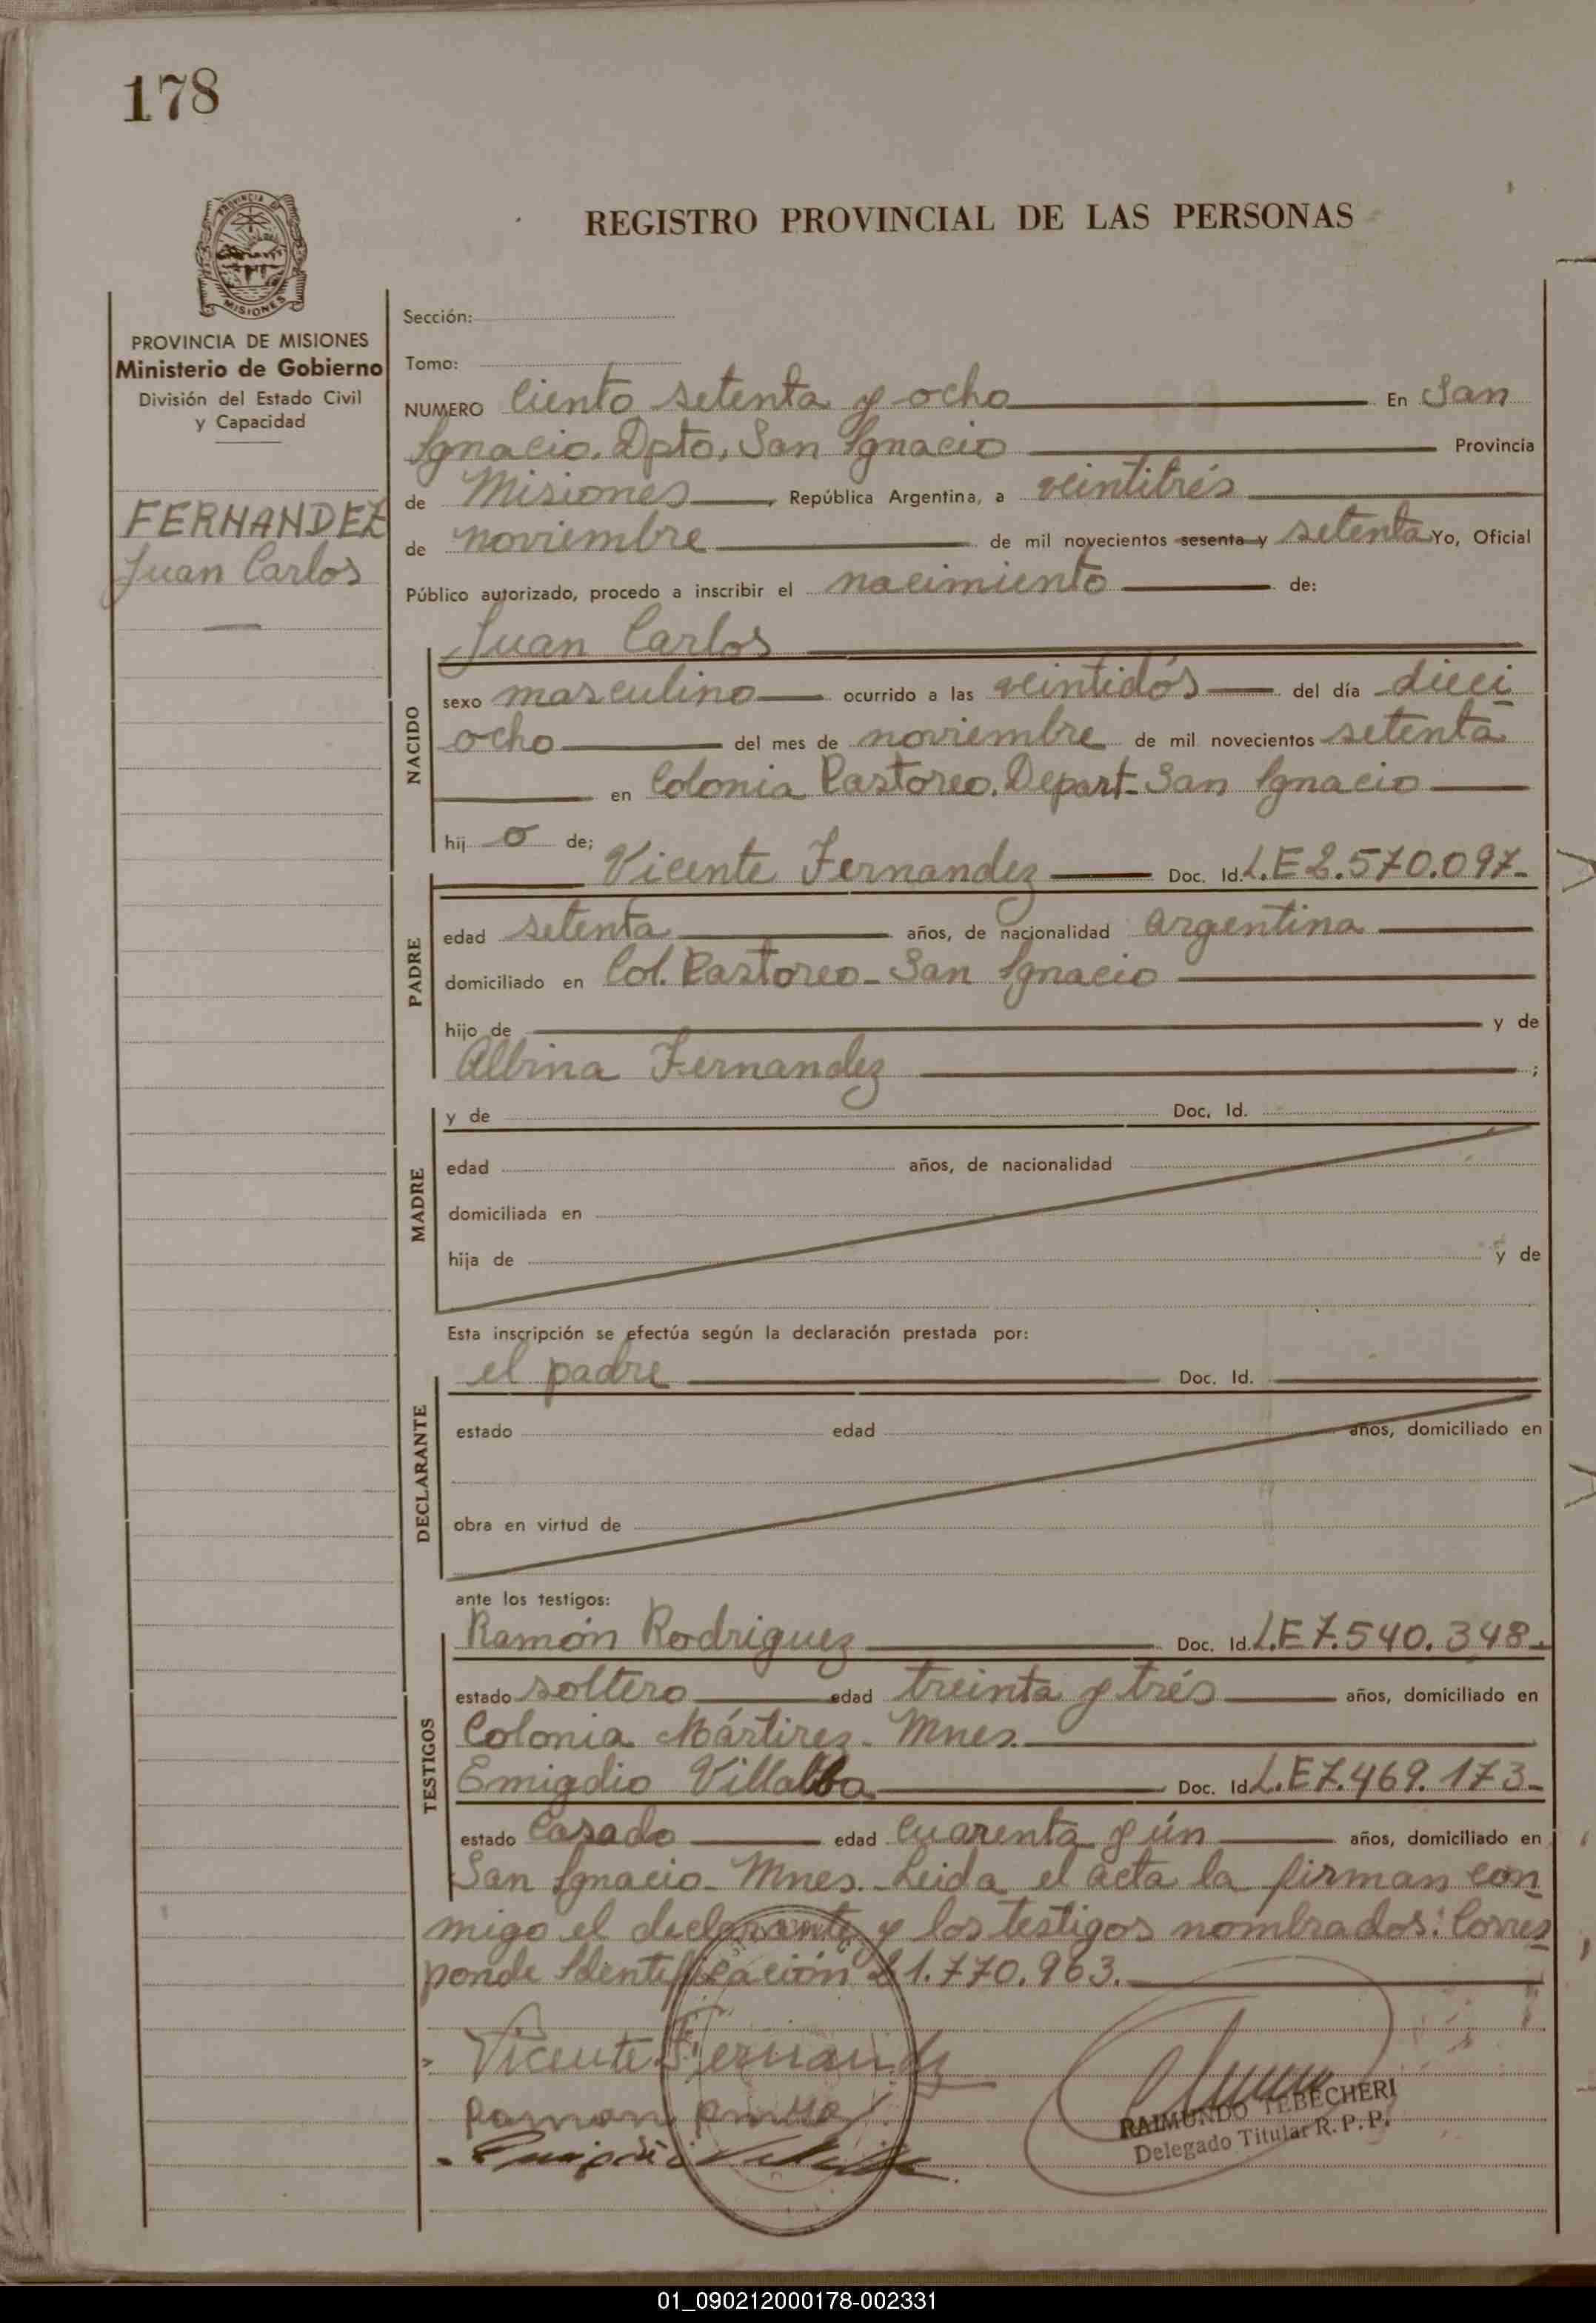 178
PROVINCIA DE
MISIONES
REGISTRO PROVINCIAL DE LAS PERSONAS
PROVINCIA DE MISIONES
Ministerio de Gobierno
División del Estado Civil
y Capacidad
FERNANDEZ
Juan Carlos
Sección:
Tomo:
NUMERO Ciento setenta y ocho En San
Ignacio, Dpto, San Ignacio Provincia
de Misiones, República Argentina, a veintitrés
de noviembre de mil novecientos sesenta y setenta Yo, Oficial
Público autorizado, procedo a inscribir el nacimiento de:
NACIDO
Juan Carlos
sexo masculino ocurrido a las veintidós del día dieci
ocho del mes de noviembre de mil novecientos setenta
en Colonia Pastoreo. Depart- San Ignacio
hij o de;
PADRE
Vicente Fernandez Doc. Id. L.E 2.570.097-
edad setenta años, de nacionalidad argentina
domiciliado en Col. Pastoreo- San Ignacio
hijo de y de
Albina Fernandez ;
MADRE
y de Doc. Id.
edad años, de nacionalidad
domiciliada en
hija de y de
Esta inscripción se efectúa según la declaración prestada por:
DECLARANTE
el padre Doc. Id.
estado edad años, domiciliado en
obra en virtud de
ante los testigos:
TESTIGOS
Ramón Rodriguez Doc. Id. L.E 7.540.348-
estado soltero edad treinta y trés años, domiciliado en
Colonia Mártires- Mnes.
Emigdio Villalba Doc. Id. L.E 7.469.173-
estado Casado edad cuarenta y ún años, domiciliado en
San Ignacio- Mnes.- Leida el acta la firman con
migo el declarante y los testigos nombrados: Corres
ponde Identificación 21.770.963.
Vicente Fernandez
Ramon
RAIMUNDO TEBECHERI
Delegado Titular R.P.P.
01_090212000178-002331